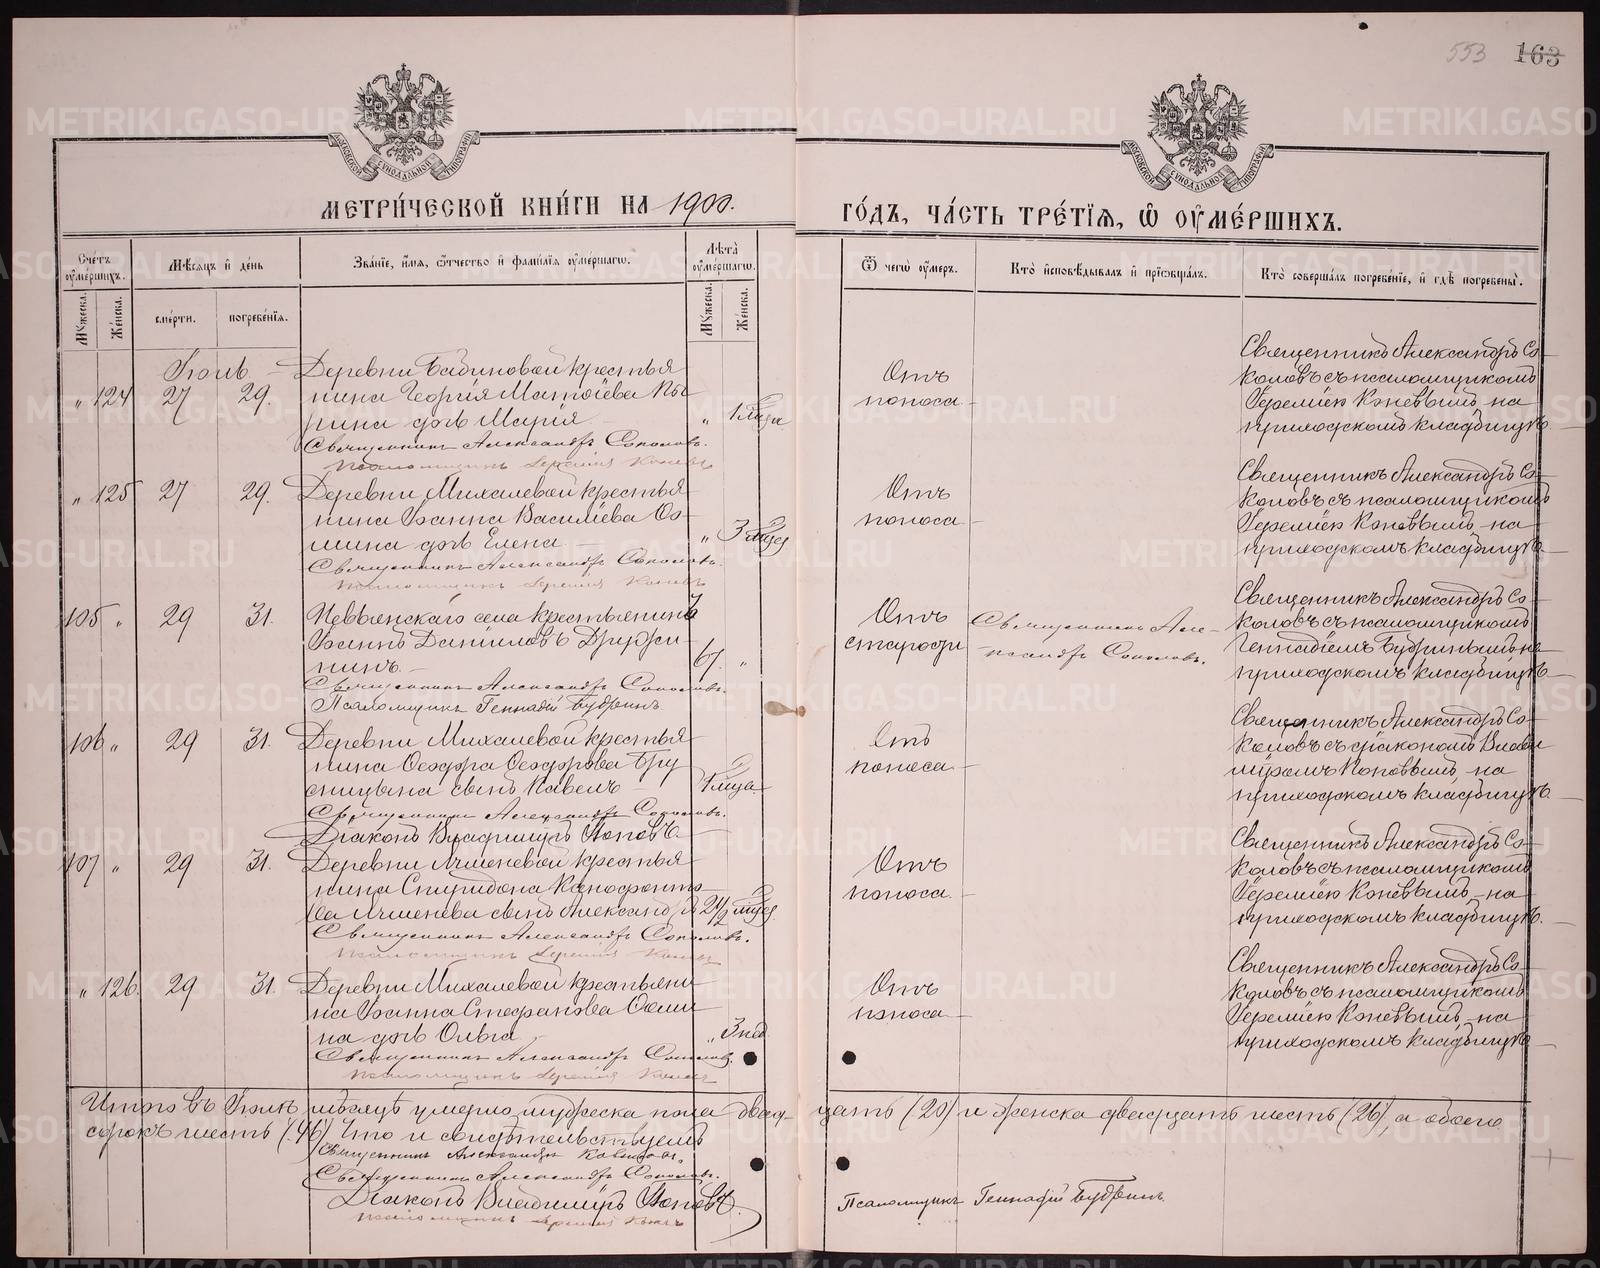 553 163
МЕТРИ́ЧЕСКОЙ КНИ́ГИ НА 1900.
ГО́ДЪ, ЧА́СТЬ ТРЕ́ТІѦ, Ѽ ОУ҆МЕ́РШИХЪ.
Сче́тъ оу҆ме́ршихъ.
Мѣ́сѧцъ и҆ де́нь
Зва́нїе, и҆́мѧ, ѻ҆́тчество и҆ фами́лїѧ оу҆ме́ршагѡ.
Лѣ́та оу҆ме́ршагѡ.
Ѿ чегѡ̀ оу҆́меръ.
Кто̀ и҆сповѣ́дывалъ и҆ прїѡбща́лъ.
Кто̀ соверша́лъ погребе́нїе, и҆ гдѣ̀ погребены̀.
Мꙋ́жеска.
Же́нска.
сме́рти.
погребе́нїѧ.
Мꙋ́жеска.
Же́нска.
Іюль
" 124 27 29.
Деревни Бабиновой крестья
нина Георгія Матѳіева
рина дчь Марія
" 1 мѣсца
Священникъ Александръ Соколовъ.
Псаломщикъ Іеремія Коневъ
Отъ
поноса
Священникъ Александръ Со-
коловъ съ псаломщикомъ
Іереміею Коневымъ, на
приходскомъ кладбищѣ.
" 125 27 29.
Деревни Михалевой крестья
нина Іоанна Василіева Оз-
мина дчь Елена
" 3 мѣсц
Священникъ Александръ Соколовъ.
Псаломщикъ Іеремія Коневъ
Отъ
поноса
Священникъ Александръ Со-
коловъ съ псаломщикомъ
Іереміею Коневымъ на
приходскомъ кладбищѣ.
105 " 29 31.
Невьянскаго села крестьянинъ
Іоаннъ Даниловъ Дружи-
нинъ.
67. "
Священникъ Александръ Соколовъ.
Псаломщикъ Геннадій Будринъ.
Отъ
старости
Священникъ Але-
ксандръ Соколовъ.
Священникъ Александръ Со-
коловъ съ псаломщикомъ
Геннадіемъ Будринымъ, на
приходскомъ кладбищѣ.
106 " 29 31.
Деревни Михалевой крестья
нина Ѳеодора Ѳеодорова Бру
сницына сынъ Павелъ
1 мѣсца
Священникъ Александръ Соколовъ.
Діаконъ Владиміръ Поповъ
Отъ
поноса
Священникъ Александръ Со-
коловъ съ діакономъ Влади
міромъ Поповымъ, на
приходскомъ кладбищѣ.
107 " 29 31.
Деревни Ячменевой крестья
нина Спиридона Ксенофонто-
ва Ячменева сынъ Александръ 2½ мѣсц
Священникъ Александръ Соколовъ.
Псаломщикъ Іеремія Коневъ
Отъ
поноса.
Священникъ Александръ Со-
коловъ съ псаломщикомъ
Іереміею Коневымъ, на
приходскомъ кладбищѣ.
" 126. 29 31.
Деревни Михалевой крестьяни-
на Іоанна Стефанова
на дчь Ольга
" 3 нед
Священникъ Александръ Соколовъ.
Псаломщикъ Іеремія Коневъ
Отъ
поноса
Священникъ Александръ Со-
коловъ съ псаломщикомъ
Іереміею Коневымъ, на
приходскомъ кладбищѣ.
Итого въ Іюлѣ мѣсяцѣ умерло мужеска пола двад-цать (20) и женска двадцать шесть (26), а обоего
сорокъ шесть (46). Что и свидѣтельствуемъ
Священникъ Александръ
Священникъ Александръ Соколовъ.
Діаконъ Владиміръ Поповъ.
Псаломщикъ Іеремія Коневъ
Псаломщикъ Геннадій Будринъ.